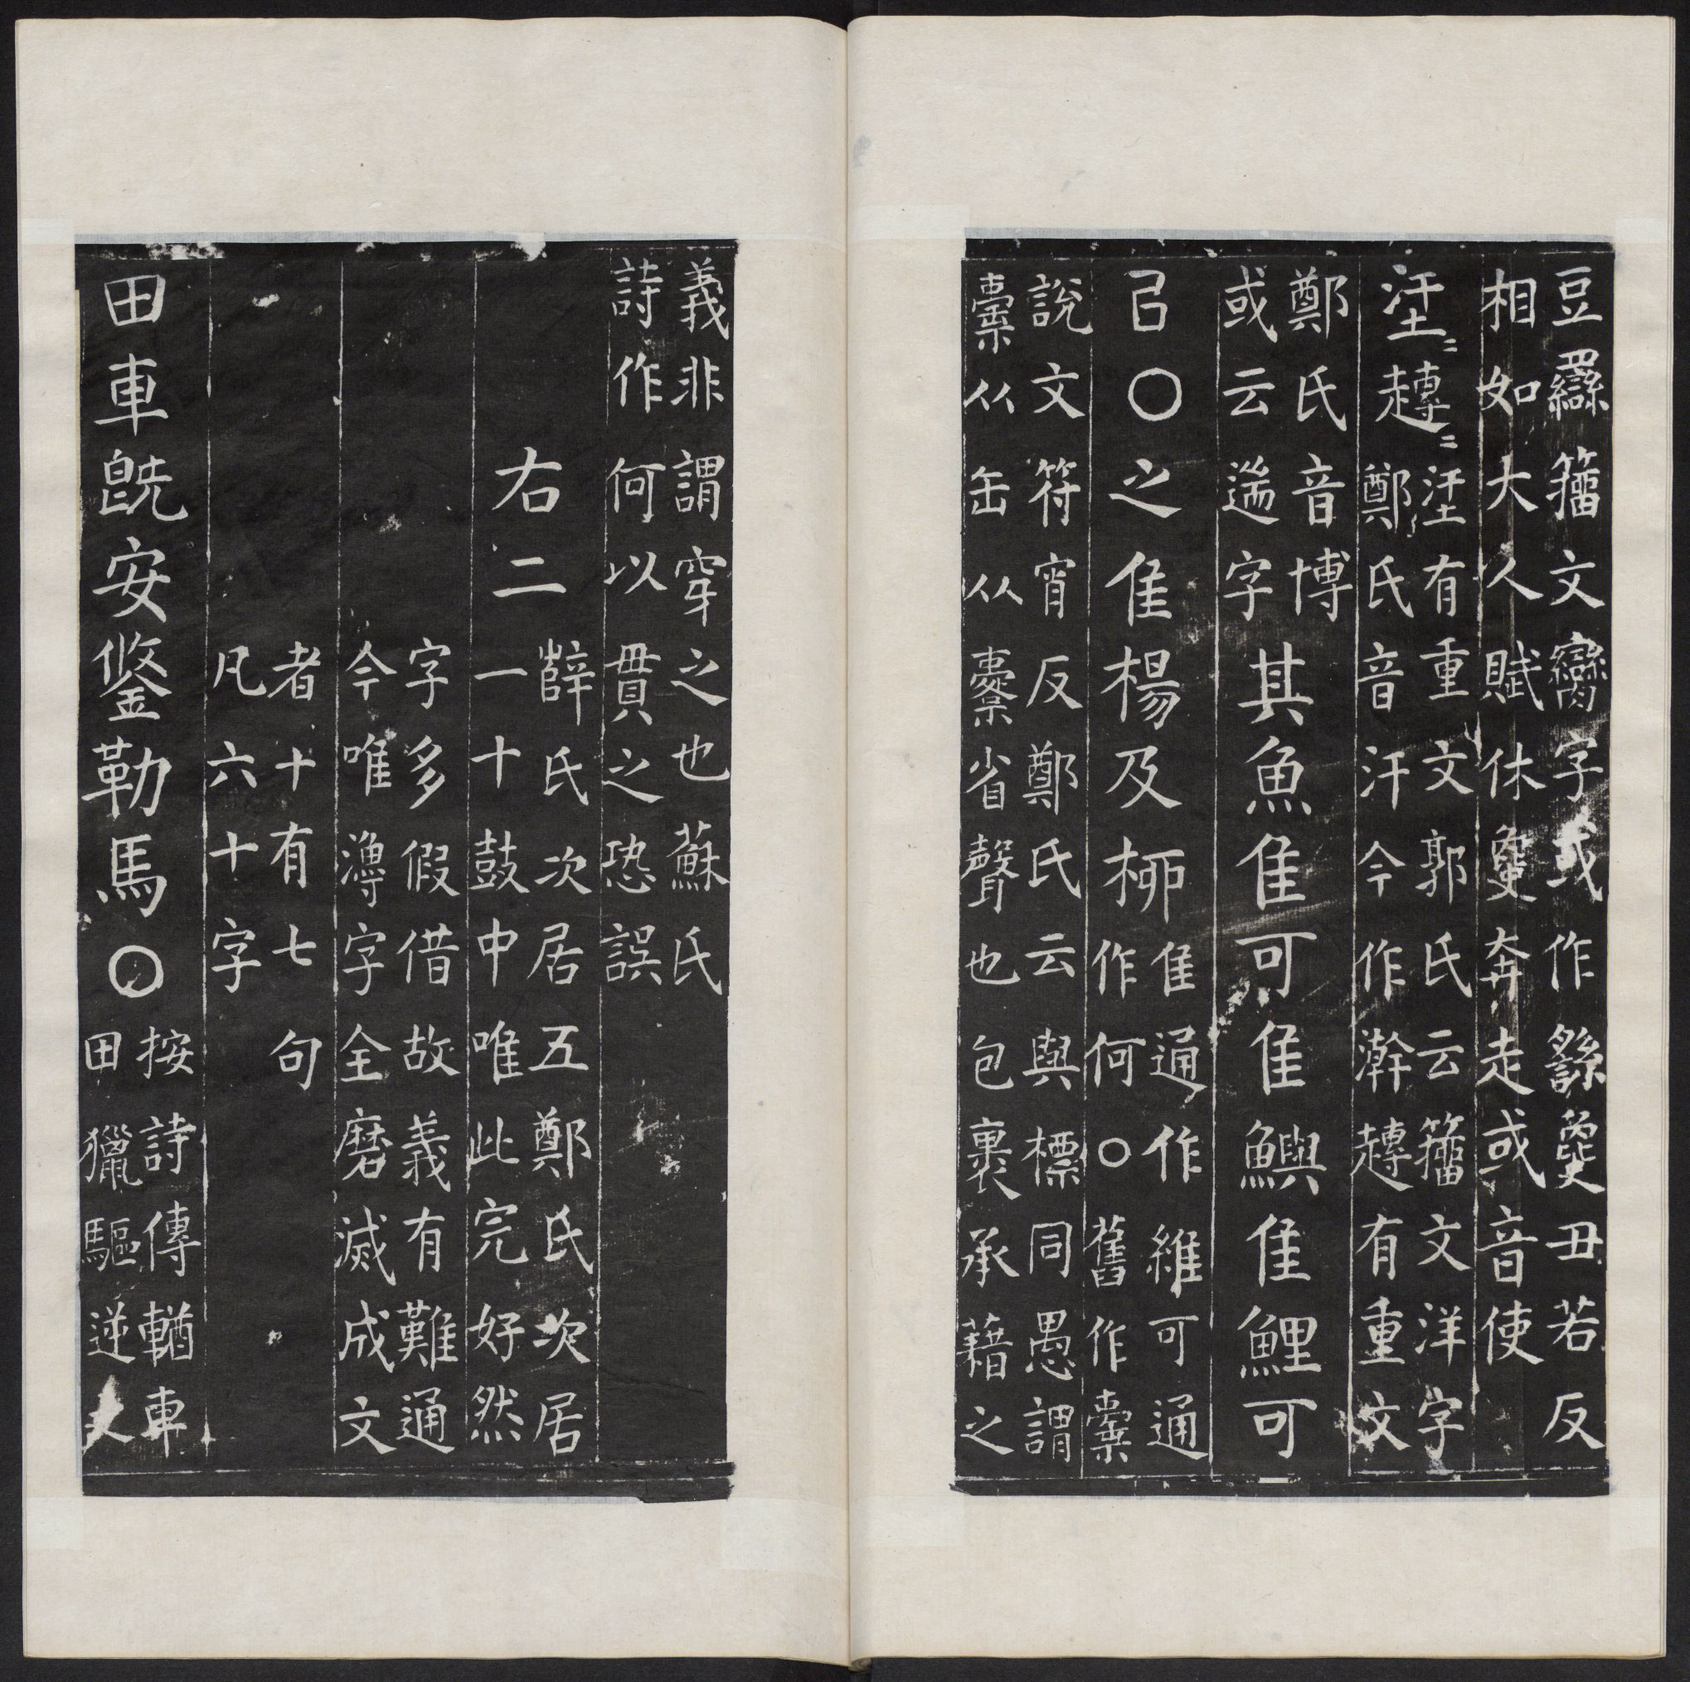 豆䜌籀文䜌字或作䜌㚟丑若反
相如大人賦休㚟奔走或音使
汗〻趍〻汗有重文郭氏云籀文洋字
鄭氏音汗今作澣趍有重文
鄭氏音博
或云湍字其魚隹可隹鱮隹鯉可
㠯〇之隹楊及柳隹通作維可通
作何〇舊作橐
說文符宵反鄭氏云與標同愚謂
橐从缶从橐省聲也包裹承藉之
義非謂穿之也蘇氏
詩作何以毌貫之恐誤
右二薛氏次居五鄭氏次居
一十鼓中唯此完好然
字多假借故義有難通
今唯漙字全磨滅成文
者十有七句
凡六十字
田車旣安鋚勒馬〇按詩傳輶車
田獵驅逆